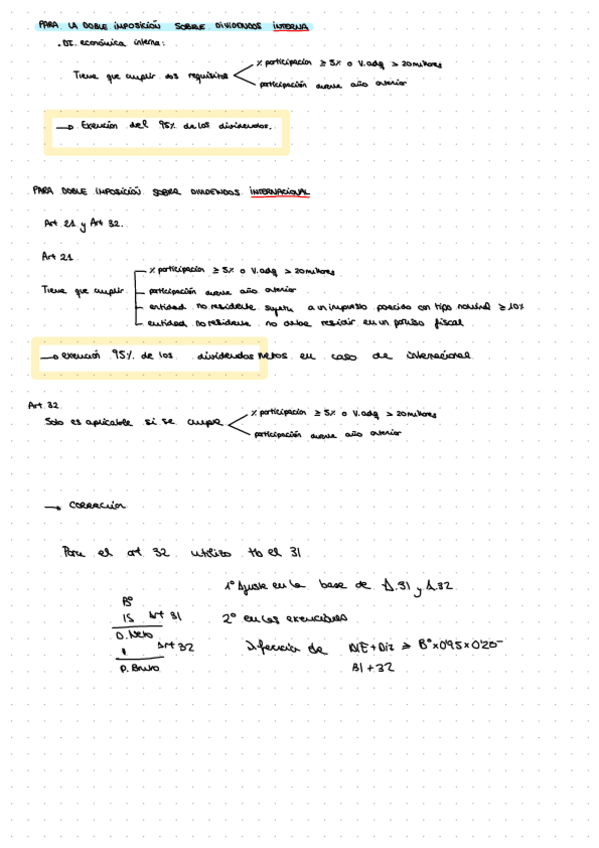 PARA LA DOBLE IMPOSICIÓN SOBRE DIVIDENDOS INTERNA
. DI. económica interna:
% participación ≥ 5% o V.adq > 20 millones
Tiene que cumplir dos requisitos
participación durante año anterior
→ Exención del 95% de los dividendos.
PARA DOBLE IMPOSICIÓN SOBRE DIVIDENDOS INTERNACIONAL
Art 21 y Art 32.
Art 21
% participación ≥ 5% o V.adq > 20 millones
Tiene que cumplir
participación durante año anterior
entidad no residente sujeta a un impuesto parecido con tipo nominal ≥ 10%
entidad no residente no debe residir en un paraíso fiscal
→ exención 95% de los dividendos netos en caso de internacional
Art. 32
% participación ≥ 5% o V.adq > 20 millones
Solo es aplicable si se cumple
participación durante año anterior
→ corrección
Para el art 32 utilizo tb el 31
1º Ajuste en la base de Δ.31 y Δ.32
Bº
IS Art 31
2º en las exenciones
D. Neto
Art 32
Bº x 0'95 x 0'20
D. Bruto
31 + 32